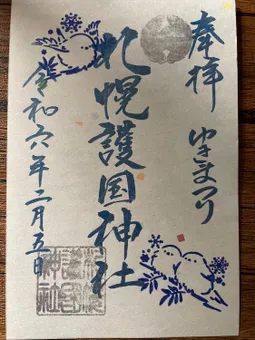 奉拝
ゆきまつり
札幌護国神社
令和六年二月五日